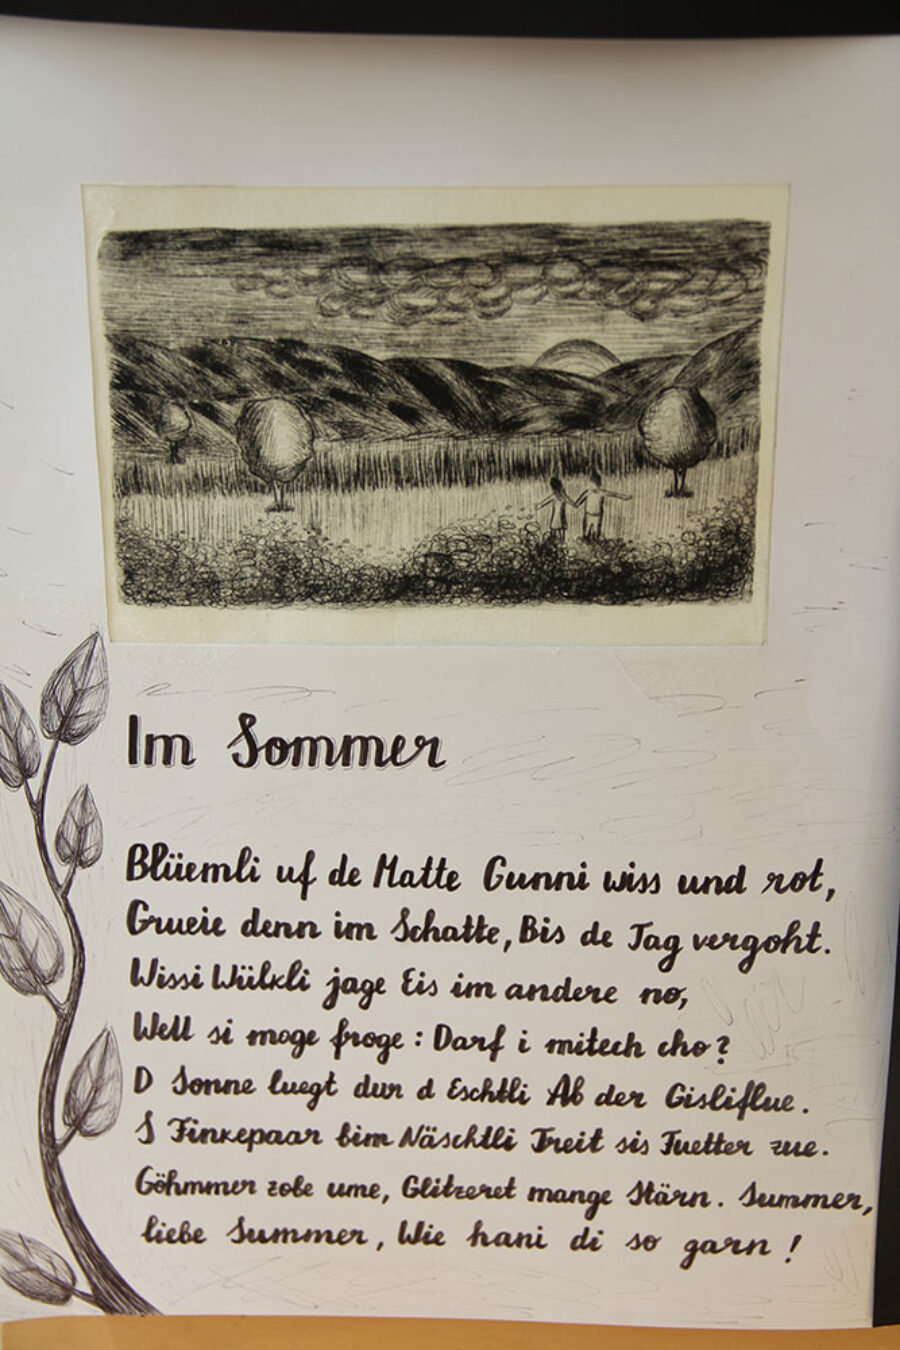 Im Sommer
Blüemli uf de Matte Gunni wiss und rot,
Grueie denn im Schatte, Bis de Tag vergoht.
Wissi Wülkli jage Eis im andere no,
Well si moge froge : Darf i mitech cho ?
D Sonne luegt dur d Eschtli Ab der Gisliflue.
S Finkepaar bim Näschtli Treit sis Fuetter zue.
Göhmmer zobe ume, Glitzeret mange Stärn. Summer,
liebe Summer, Wie hani di so garn !